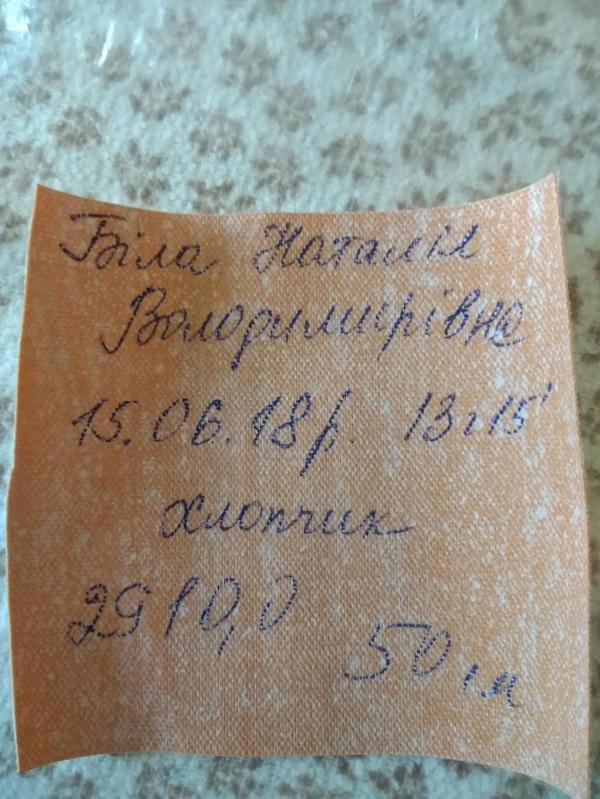 Біла Наталія
Володимирівна
15.06.18р. 13г15'
хлопчик
2910,0
50 см